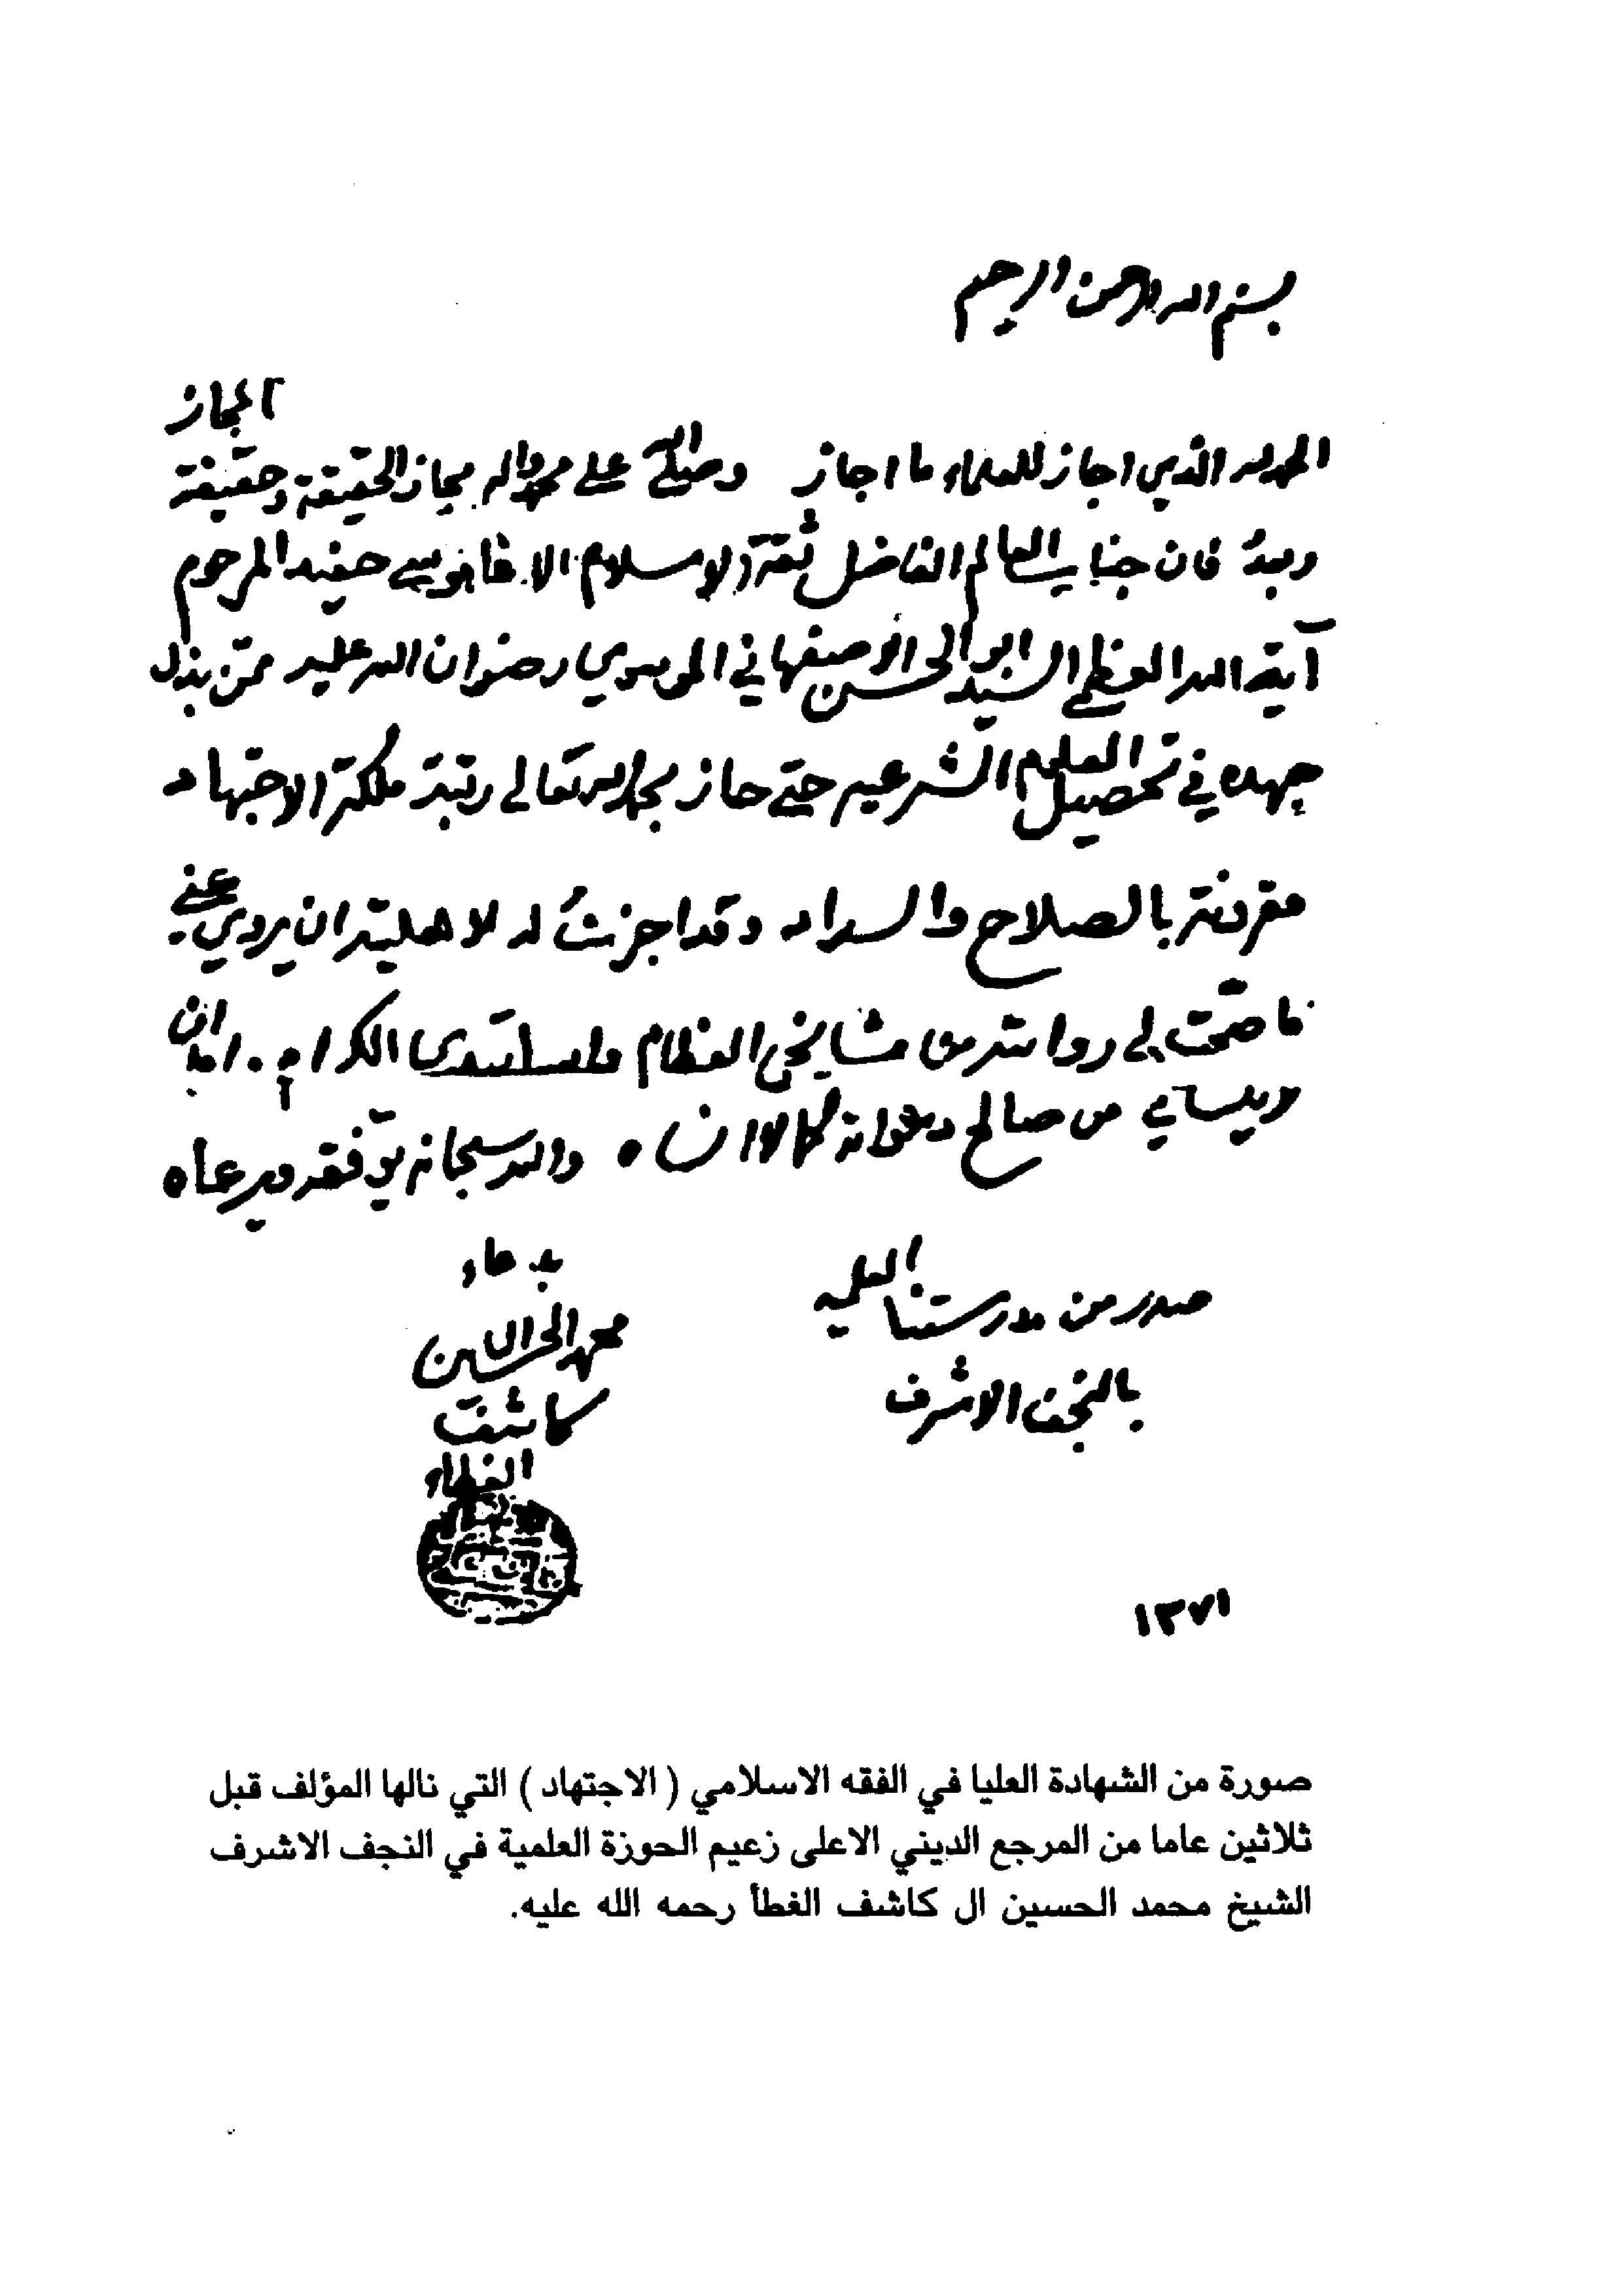 بسم الله الرحمن الرحيم
الحمد لله الذي اجاز للعلماء ما اجاز وصلى الله على محمد واله مجاز الحقيقة وحقيقة المجاز
وبعدُ فان جناب العالم الفاضل ثقة الاسلام الاغا موسى حفيد المرحوم
آية الله العظمى السيد ابو الحسن الاصفهاني الموسوي رضوان الله عليه ممّن بذل
جهده في تحصيل العلوم الشرعيه حتى حاز بحمد الله تعالى رتبة ملكة الاجتهاد
مقرونة بالصلاح والسداد وقد اجزتُ له لاهليته ان يروي عني
ما صحّت لي روايته من مشايخي العظام واساتيذي الكرام وان
لا ينساني من صالح دعواته كما لا انساه والله سبحانه يوفّقه ويرعاه
صدر من مدرستنا العلميه
بالنجف الاشرف
بدعاء
محمد الحسين ال
كاشف
الغطاء
١٣٧١
صورة من الشهادة العليا في الفقه الاسلامي ( الاجتهاد ) التي نالها المؤلف قبل
ثلاثين عاما من المرجع الديني الاعلى زعيم الحوزة العلمية في النجف الاشرف
الشيخ محمد الحسين ال كاشف الغطأ رحمه الله عليه.